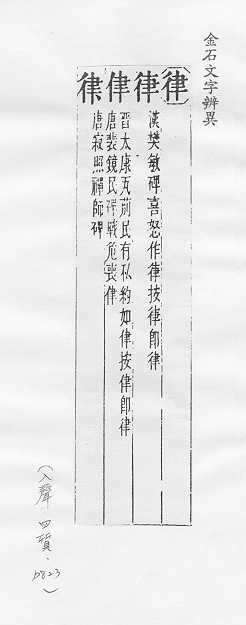 金石文字辨異
律
律 漢樊敏碑喜怒作律按律即律
侓 晉太康瓦莂民有私約如侓按侓即律
唐裴鏡民碑戰危喪侓
唐寂照禪師碑
(入聲·四質·p823)